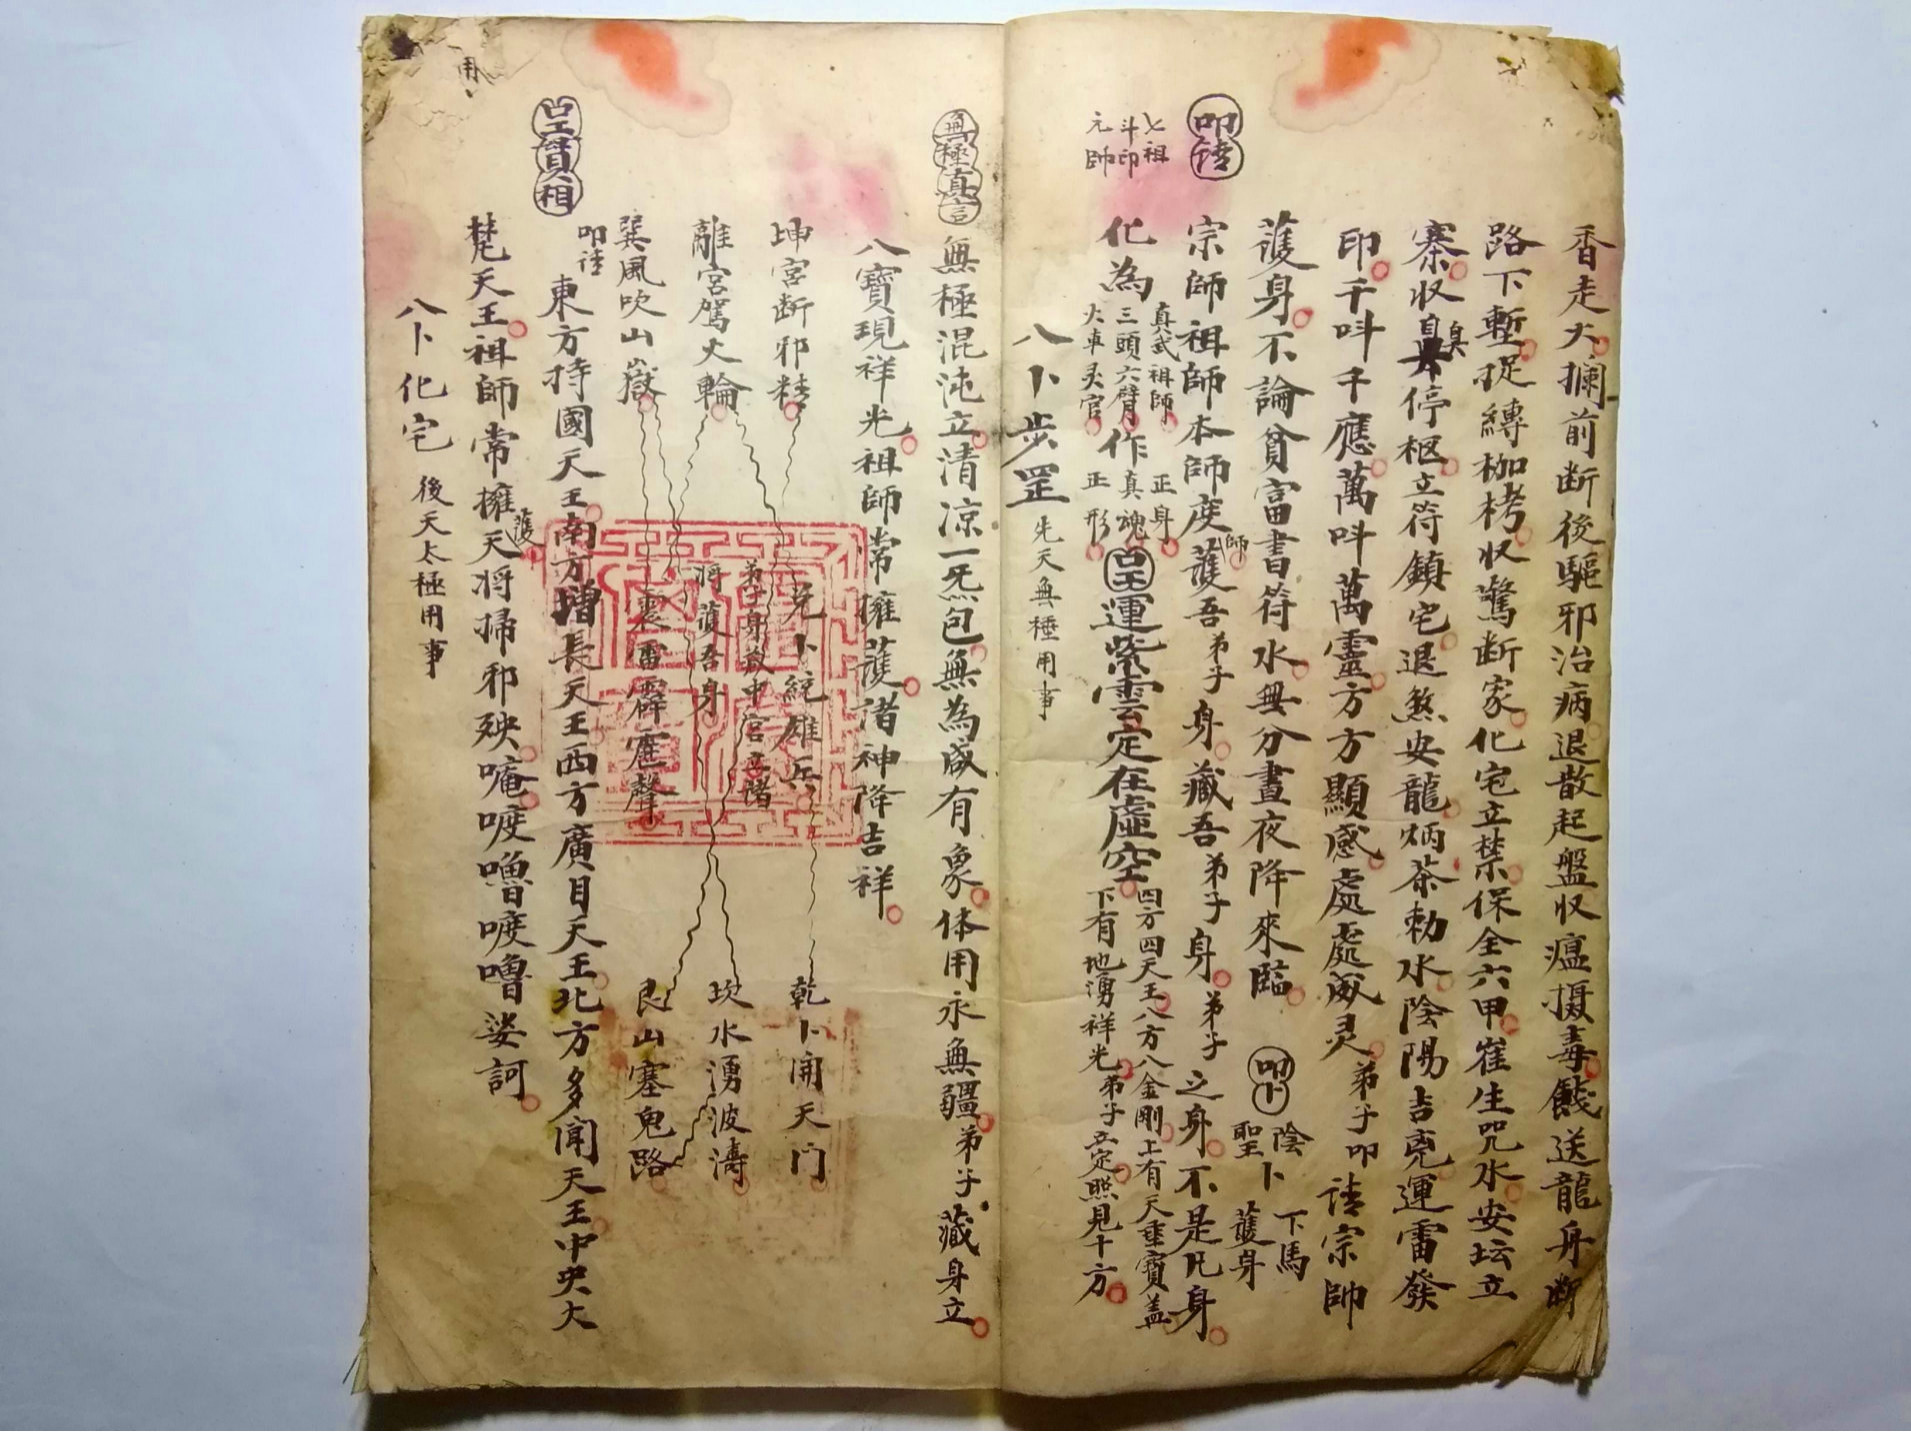 香走大攔前断後驅邪治病退散起盤収瘟摄毒餞送龍舟断
路下塹捉縛枷栲収驚断家化宅立禁保全六甲崔生咒水安坛立
寨収臭停枢立符鎮宅退煞安龍炳茶勅水陰陽吉亮運雷發
印千呌千應萬呌萬靈方方顯感處處威灵弟子叩請宗師
護身不論貧富書符水毋分晝夜降來臨
叩卜
陰聖卜
下馬護身
叩請
宗師祖師本師度師護吾弟子身藏吾弟子身弟子之身不是凡身
七祖
斗印
元帥
化為
真武祖師
三頭六臂
火車灵官
作
正身
真魂
正形
運紫雲定在虛空
四方四天王八方八金剛上有天垂寶盖
下有地湧祥光弟子立定照見十方
八卜步罡
先天無極用事
無極真言
無極混沌立清凉一炁包無為咸有象体用永無疆弟子藏身立
八寶現祥光祖師常擁護諸神降吉祥
坤宮断邪精
兌卜統雄兵
乾卜開天门
離宮駕火輪
弟子身藏中宮立諸
将護吾身
坎水湧波濤
巽風吹山嶽
震雷霹靂聲
艮山塞鬼路
叩請
東方持國天王南方增長天王西方廣目天王北方多聞天王中央大
梵天王祖師常擁護天将掃邪殃唵唛嚕唛嚕娑訶
八卜化宅
後天太極用事
用